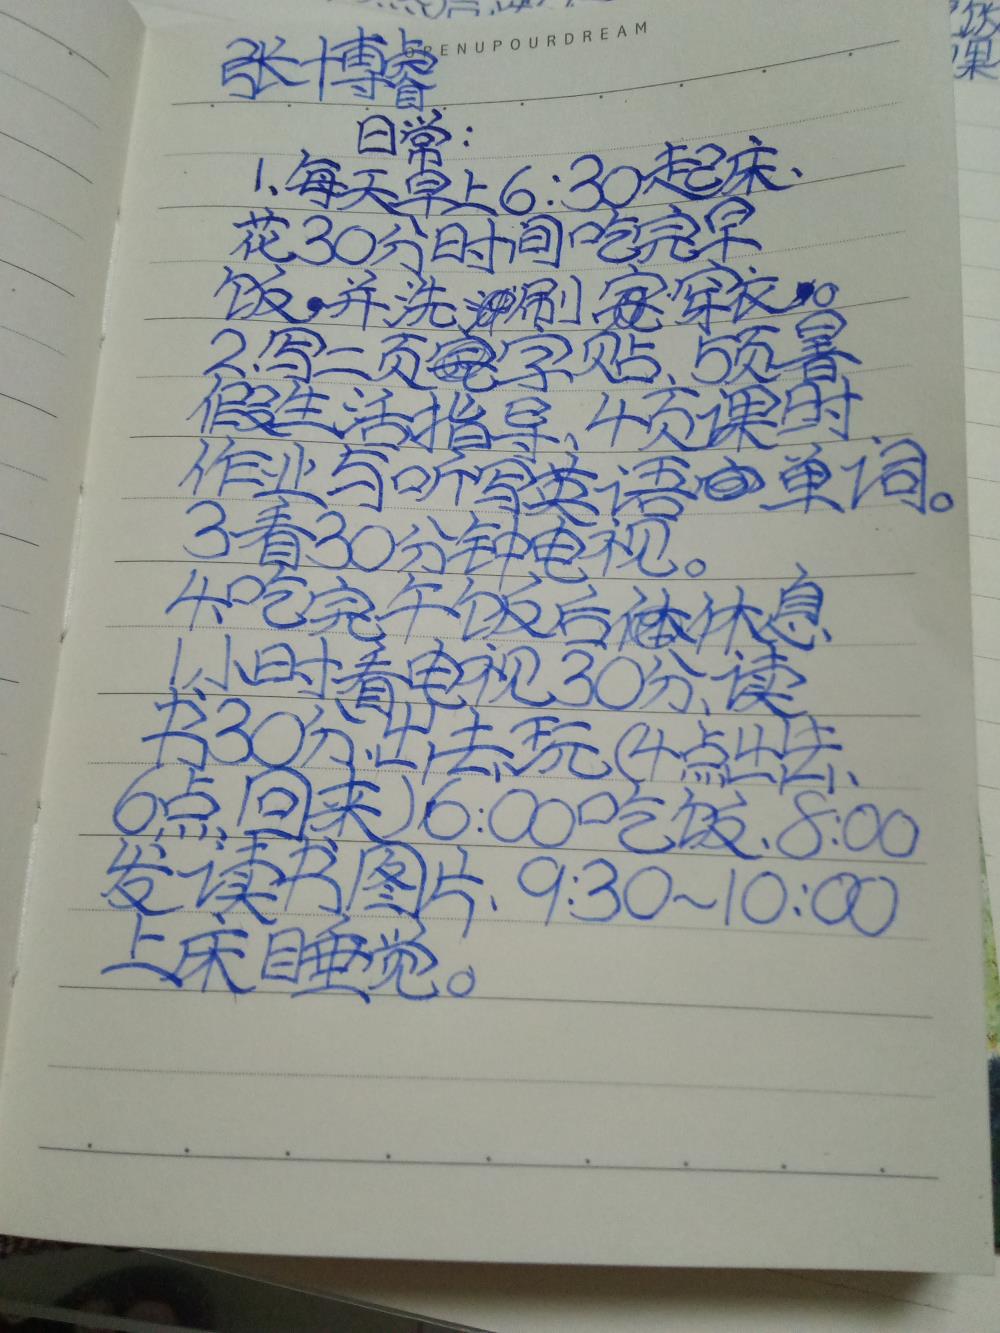 OPENUPOURDREAM
张博睿
日常：
1、每天早上6:30起床、
花30分时间吃完早
饭。并洗刷穿衣。
2.写二页字贴、5页暑
假生活指导、4页课时
作业与听写英语单词。
3看30分钟电视。
4、吃完午饭后休息
1小时看电视30分、读
书30分、出去玩（4点出去、
6点回来）6:00吃饭、8:00
发读书图片、9:30~10:00
上床睡觉。